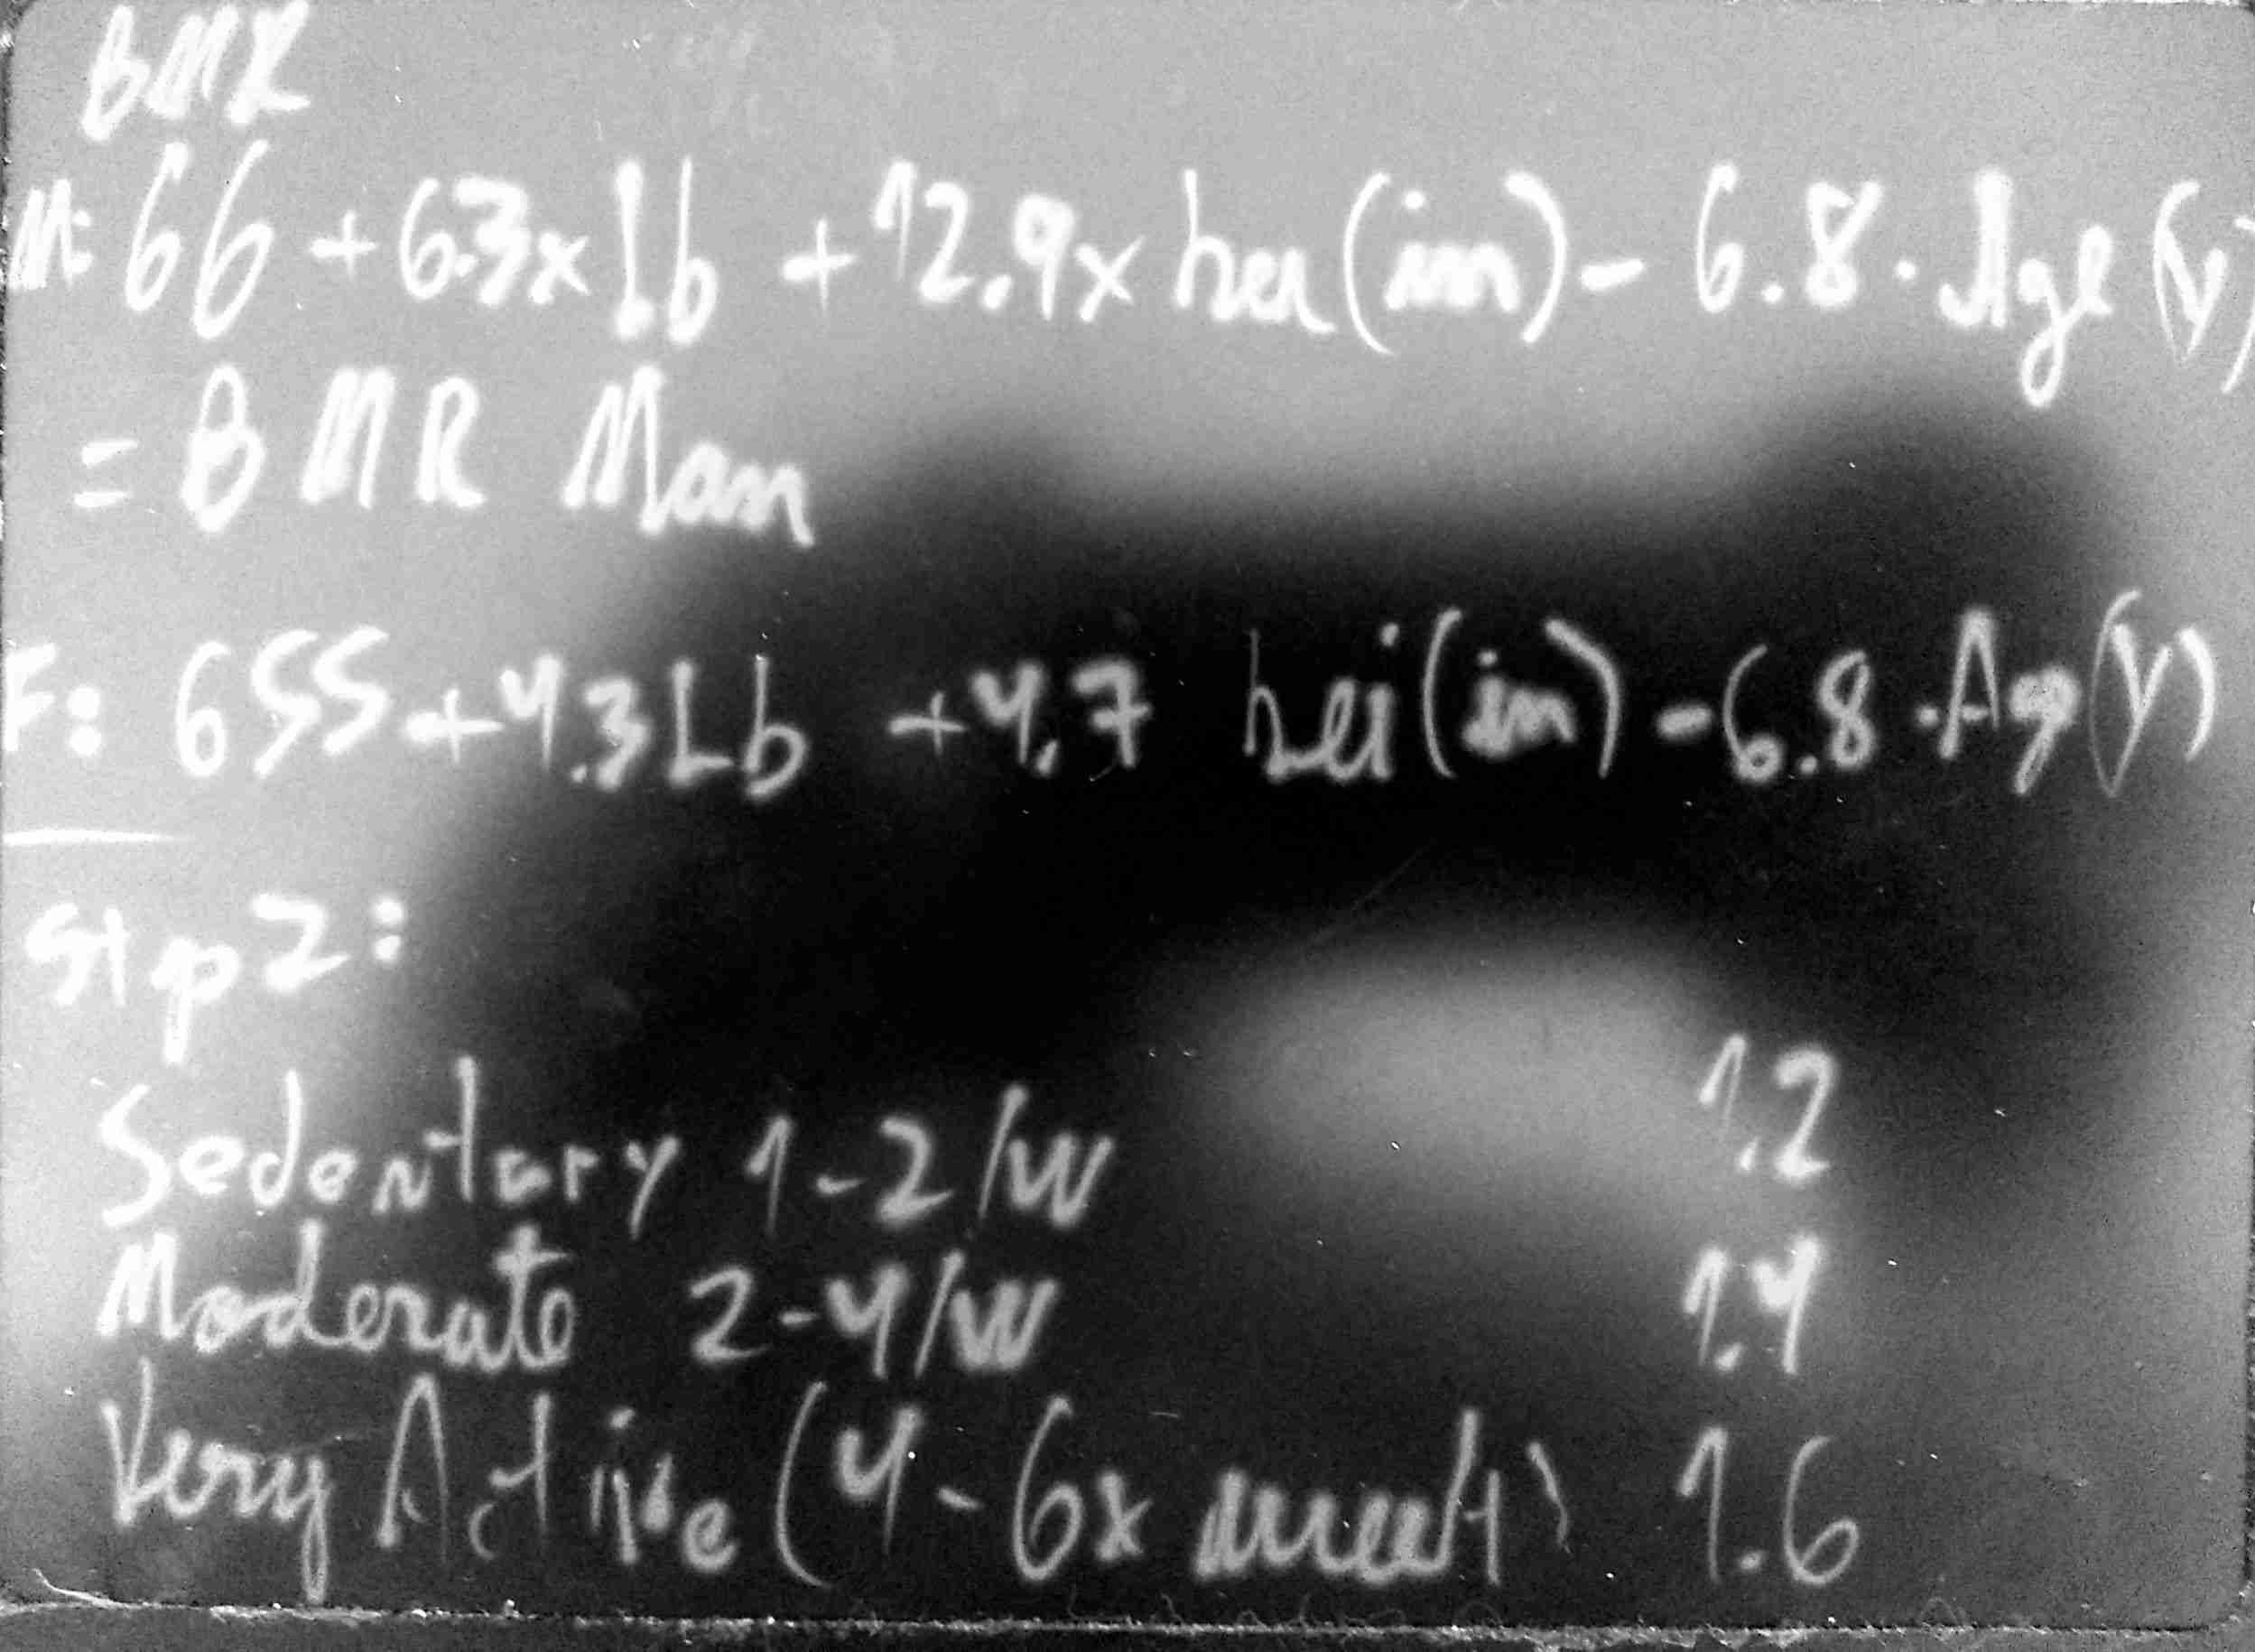 BMR
M: 66 + 6.3x Lb + 12.9x hei (in) - 6.8 · Age (y)
= BMR Man
F: 655 + 4.3 Lb + 4.7 hei (in) - 6.8 · Age (y)
Step 2:
Sedentary 1-2/W 1.2
Moderate 2-4/W 1.4
Very Active (4-6x week) 1.6